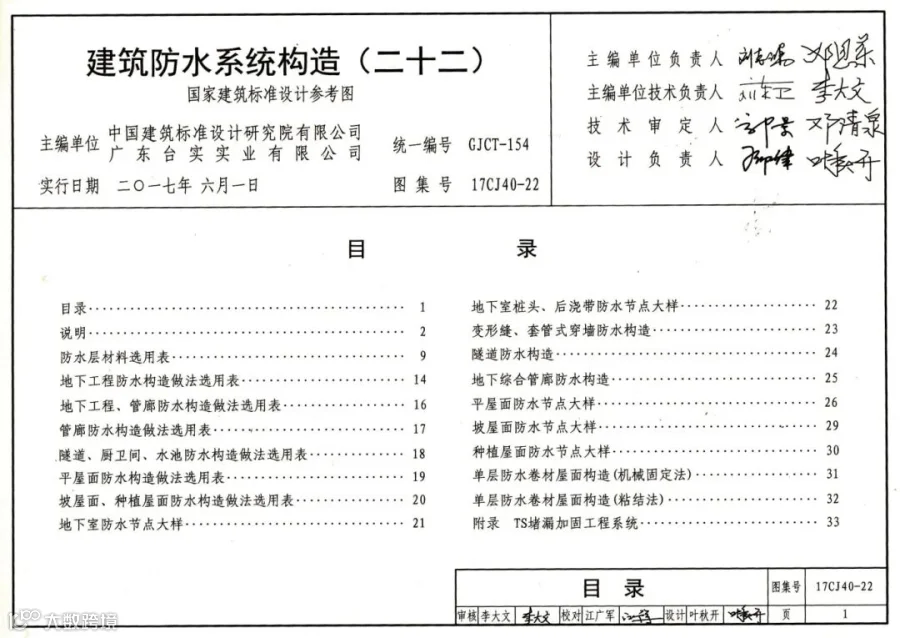 建筑防水系统构造（二十二）
国家建筑标准设计参考图
主编单位 中国建筑标准设计研究院有限公司
广东台实实业有限公司
统一编号 GJCT-154
实行日期 二〇一七年六月一日
图集号 17CJ40-22
主编单位负责人
主编单位技术负责人 李大文
技术审定人 邓清泉
设计负责人 叶秋开
目 录
目录 1
说明 2
防水层材料选用表 9
地下工程防水构造做法选用表 14
地下工程、管廊防水构造做法选用表 16
管廊防水构造做法选用表 17
隧道、厨卫间、水池防水构造做法选用表 18
平屋面防水构造做法选用表 19
坡屋面、种植屋面防水构造做法选用表 20
地下室防水节点大样 21
地下室桩头、后浇带防水节点大样 22
变形缝、套管式穿墙防水构造 23
隧道防水构造 24
地下综合管廊防水构造 25
平屋面防水节点大样 26
坡屋面防水节点大样 29
种植屋面防水节点大样 30
单层防水卷材屋面构造(机械固定法) 31
单层防水卷材屋面构造(粘结法) 32
附录 TS堵漏加固工程系统 33
目 录
图集号 17CJ40-22
审核 李大文 李大文 校对 江广军 设计 叶秋开 叶秋开 页 1
大数跨境